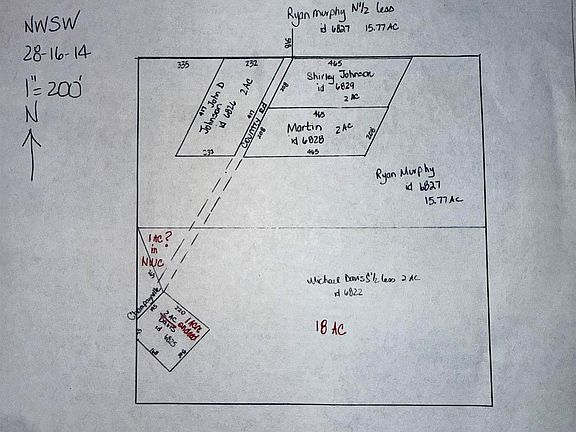 NWSW
28-16-14
1" = 200'
N
Ryan Murphy N 1/2 less
id 6827 15.77 AC
335
232
465
Johnson John D
id 6826
2 AC
417
417
233
County Rd
208
208
Shirley Johnson
id 6829
2 AC
465
Martin 2 AC
id 6828
465
208
Ryan Murphy
id 6827
15.77 AC
1 AC?
in
NWC
Michael Davis S 1/2 less 2 AC
id 6822
18 AC
220
AC
Davis
id 6825
1 acre